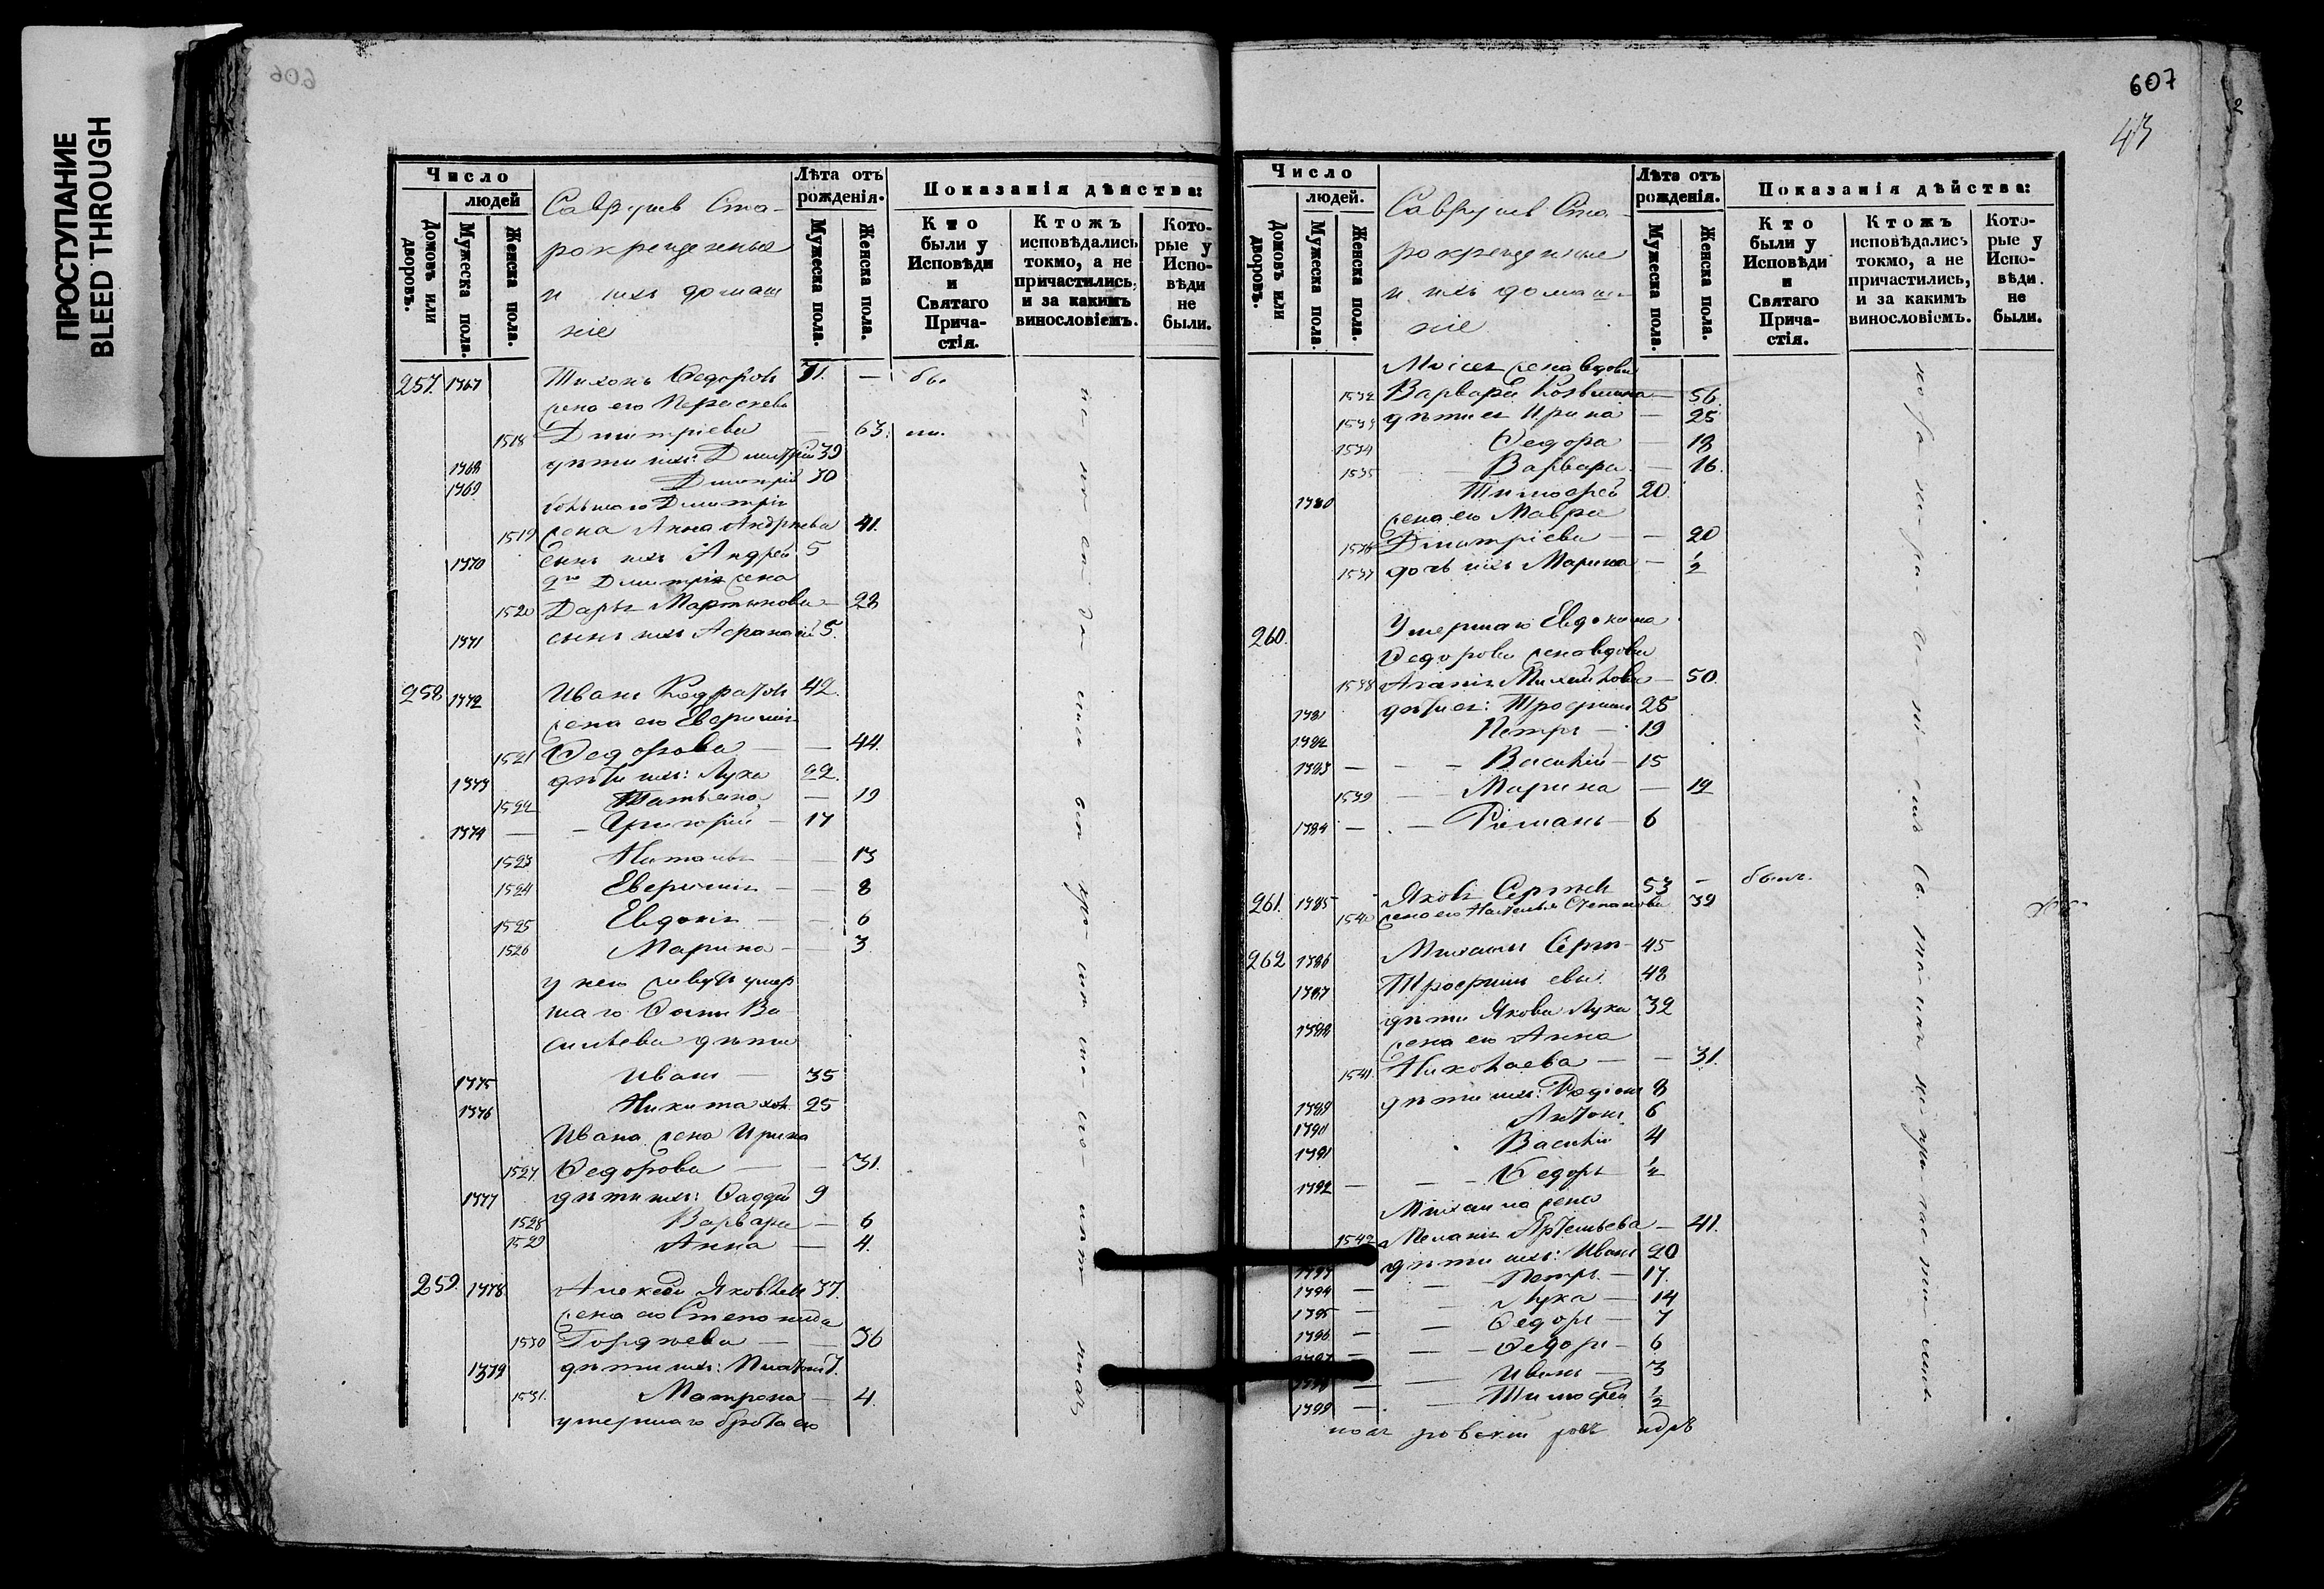 ПРОСТУПАНИЕ
BLEED THROUGH
606
Число
людей
Домовъ или дворовъ.
Мужеска пола.
Женска пола.
Ста-
рокрещенные
и ихъ домаш
ніе
Лѣта отъ рожденія.
Мужеска пола.
Женска пола.
Показанія дѣйства:
Кто были у Исповѣди и Святаго Причастія.
Ктожъ исповѣдались токмо, а не причастились, и за какимъ винословіемъ.
Которые у Исповѣди не были.
257. 1367 Тихонъ Ѳедоровъ 71. —
жена его Параскева
1518 Дмитріева — 63.
1368 дѣти ихъ: Дмитрій 39
1369 Дмитрій 30
большаго Дмитрія
1519 жена Анна Андреева 41.
1370 сынъ ихъ Андрей 5
2го Дмитрія жена
1520 Дарья Мартынова — 28
1371 сынъ ихъ Аѳанасій 5.
258 1372 Иванъ 42.
жена его Евфимія
1521 Ѳедорова — — 44.
1373 дѣти ихъ: Лука 22.
1522 Татьяна — 19
1374 — — Григорій — 17
1523 Наталья — — 13
1524 Евфимія — — 8
1525 Евдокія — — 6
1526 Марина — — 3
у него живутъ умер
шаго Ѳомы Ва
сильева дѣти
1375 Иванъ — 35
1376 Никита хол. 25
Ивана жена Ирина
1527. Ѳедорова — — 31.
1377 дѣти ихъ: Ѳаддей 9
1528 Варвара — 6
1529 Анна — 4.
259. 1378 Алексѣй Яковлевъ 37.
жена его Степанида
1530 Гордѣева — — 36
1379 дѣти ихъ: 7.
1531. Матрона — 4.
умершаго брата его
607
43
Число
людей.
Домовъ или дворовъ.
Мужеска пола.
Женска пола.
Ста-
рокрещенные
и ихъ домаш-
ніе
Лѣта отъ рожденія.
Мужеска пола.
Женска пола.
Показанія дѣйства:
Кто были у Исповѣди и Святаго Причастія.
Ктожъ исповѣдались токмо, а не причастились, и за какимъ винословіемъ.
Которые у Исповѣди не были.
Моисея жена вдова
1532 Варвара Козьмина — 56.
1533 дѣти ея Ирина — 25
1534 Ѳедора — 18
1535 — Варвара — 16.
1380 Тимофей 20.
жена его Мавра
1536 Дмитріева — — 20
1537 дочь ихъ Марина — 1/2
260. Умершаго Евдокима
Ѳедорова жена вдова
1538 Агапія Михайлова — 50.
1381 дѣти ея: Трофимъ 25
1382 Петръ — 19
1383 — — — Василій — 15
1539 — — Марина — 12
1384 — — — Романъ — 6
261. 1385 Яковъ Сергѣевъ 53 — былъ.
1540 жена его Наталья Степанова 39
262 1386 Михаилъ Сергѣ- 45
1387 Трофимъ евы. 48
1388 дѣти Якова Лука 32
жена его Анна
1541. Николаева — — 31.
1389 дѣти ихъ: Родіонъ 8
1390 Антонъ 6
1391 Василій 4
1392 — — — Ѳедоръ 1/2
Михаила жена
1542 Меланія Артемьева — 41.
1393 дѣти ихъ: Иванъ 20
1394 — — Петръ — 17.
1395 — — Лука — 14
1396 — — Ѳедоръ — 7
1397 — — Ѳедоръ — 6
1398 — — Иванъ — 3
1399 — — Тимофей 1/2